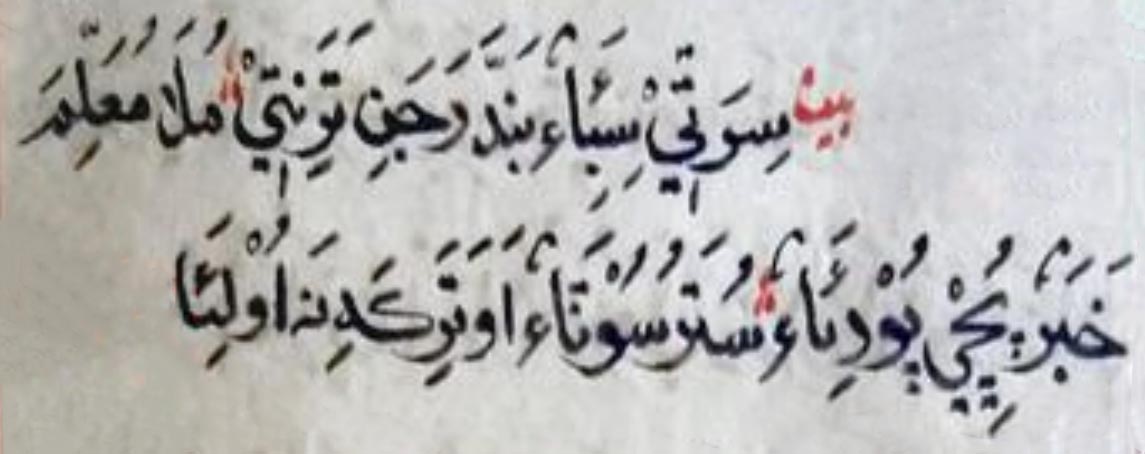 بيت سِوَتِيْ سِبِأَءْ بَنَدَّرَجَنِ تَوِنَتِيْ مُلَا مُعَلِّمَ
خَبَرْ پِچِيْ پُوْدِئَاءْ سُتَرُسُوْتَاءْ اَوَتَرِكَدِنَه اُوْلِئَا